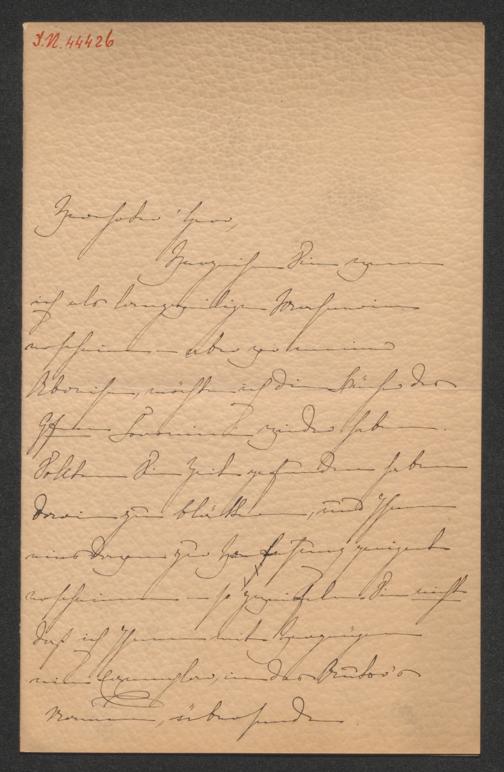 I.N. 44426
Verehrter Herr,
Verzeihen Sie wenn
ich als langweilige
erscheine – aber vor meiner
Abreise, möchte ich die Bücher des
wieder haben.
Sollten Sie Zeit gefunden haben
darin zu blättern, und Ihnen
eines davon zur geeignet
erscheinen – so zweifeln Sie nicht
daß ich Ihnen mit Vergnügen
ein Exemplar, in des Autors
Namen, übersende.